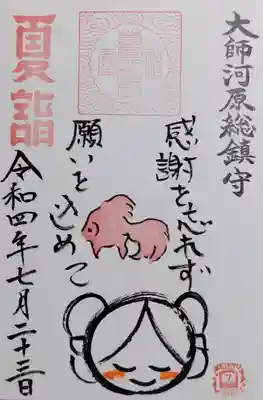 大師河原総鎮守
感謝を忘れず
願いを込めて
夏詣
令和四年七月二十三日